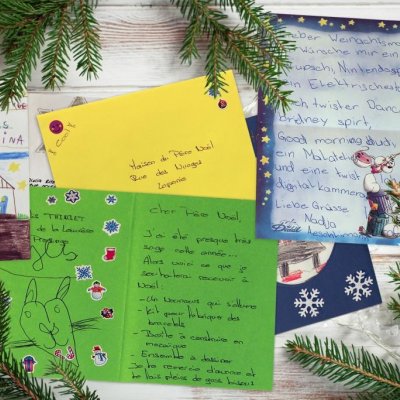 INA
Maison du Père Noël
Rue des Nuages
Laponie
eber Weinachtsma
wünsche mir ein
upschi, Nintendods
ch twister Danc
ordney spirt,
Good morning dudy,
ein
und eine twist
digitalkammera
Liebe Grüsse
Nadja
de la
Cher Père Noël,
J'ai été presque très
sage cette année...
Alors voici ce que je
souhaiterai recevoir à
Noël:
- Un Nounours qui s'allume
- Kit pour fabriquer des
bracelets
- Boîte à construire en
mosaïque
- Ensemble à dessiner
Je te remercie d'avance et
te fais pleins de gros bisous